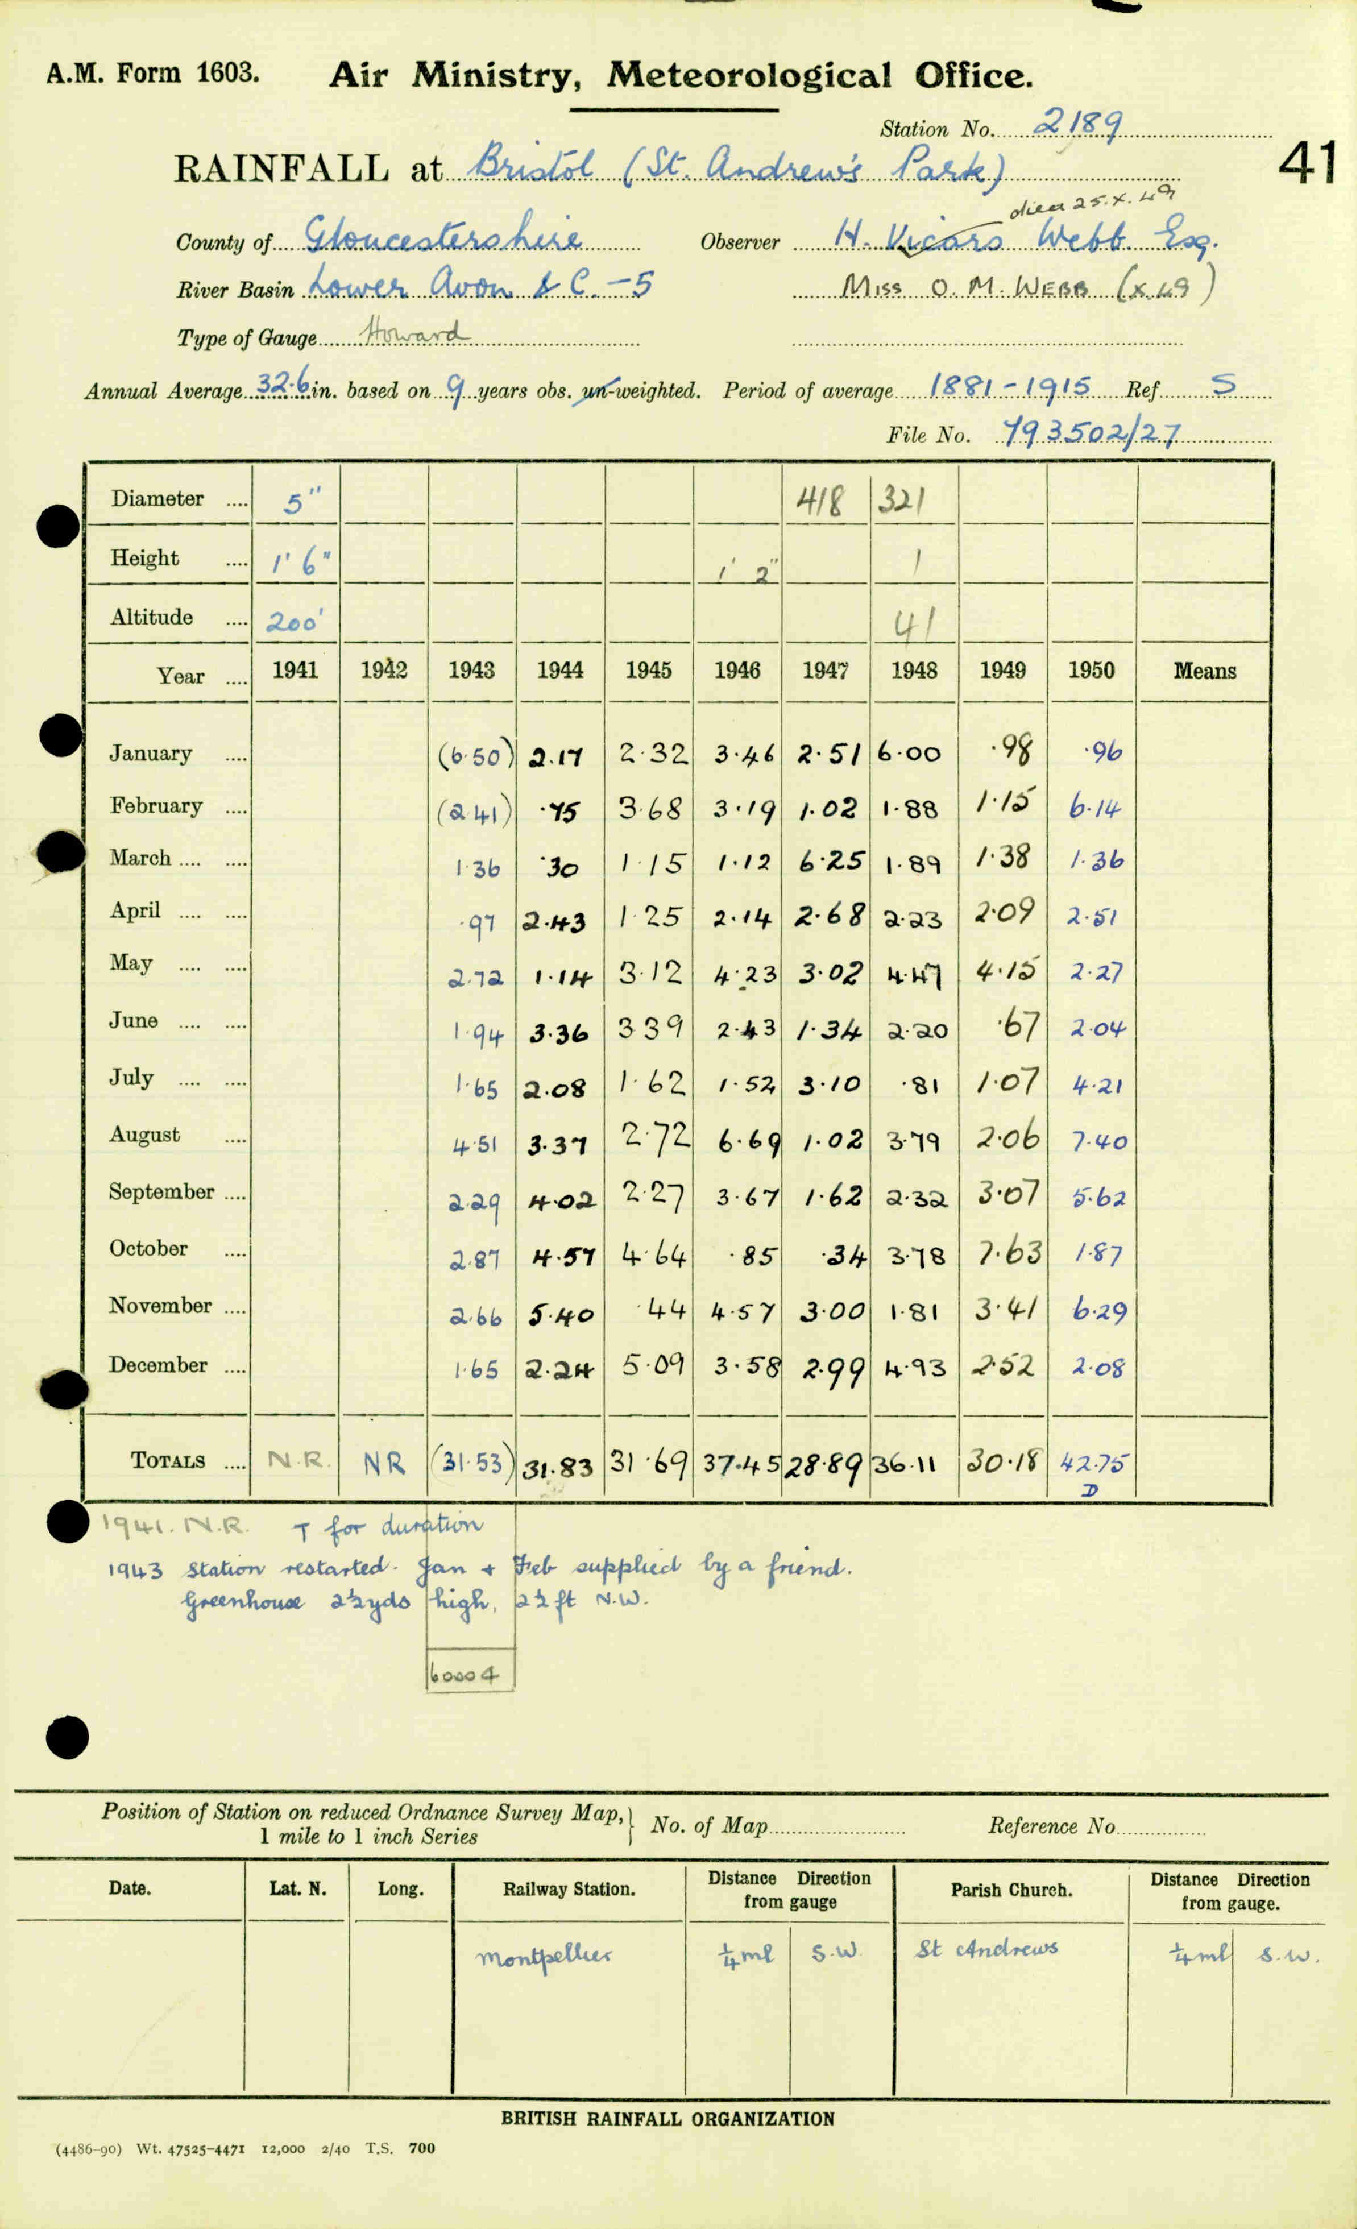 A.M. Form 1603. Air Ministry, Meteorological Office.
Station No. 2189
RAINFALL at Bristol (St. Andrew's Park) 41
died 25.X.49
County of Gloucestershire Observer H. Vicars Webb Esq.
River Basin Lower Avon & C. -5 MISS O. M. WEBB (X.49)
Type of Gauge Howard
Annual Average 32.6 in. based on 9 years obs. un-weighted. Period of average 1881-1915 Ref. S
File No. 793502/27
Diameter .... 5" 418 321
Height .... 1' 6" 1' 2" 1
Altitude .... 200' 41
Year .... 1941 1942 1943 1944 1945 1946 1947 1948 1949 1950 Means
January .... (6.50) 2.17 2.32 3.46 2.51 6.00 .98 .96
February .... (2.41) .75 3.68 3.19 1.02 1.88 1.15 6.14
March .... .... 1.36 .30 1.15 1.12 6.25 1.89 1.38 1.36
April .... .... .97 2.43 1.25 2.14 2.68 2.23 2.09 2.51
May .... .... 2.72 1.14 3.12 4.23 3.02 4.47 4.15 2.27
June .... .... 1.94 3.36 3.39 2.43 1.34 2.20 .67 2.04
July .... .... 1.65 2.08 1.62 1.52 3.10 .81 1.07 4.21
August .... 4.51 3.37 2.72 6.69 1.02 3.79 2.06 7.40
September .... 2.29 4.02 2.27 3.67 1.62 2.32 3.07 5.62
October .... 2.87 4.57 4.64 .85 .34 3.78 7.63 1.87
November .... 2.66 5.40 .44 4.57 3.00 1.81 3.41 6.29
December .... 1.65 2.24 5.09 3.58 2.99 4.93 2.52 2.08
TOTALS .... N.R. NR (31.53) 31.83 31.69 37.45 28.89 36.11 30.18 42.75
D
1941. N.R. T for duration
1943 Station restarted. Jan + Feb supplied by a friend.
Greenhouse 2½yds high, 2½ft N.W.
60004
Position of Station on reduced Ordnance Survey Map, } No. of Map Reference No.
1 mile to 1 inch Series
Date. Lat. N. Long. Railway Station. Distance Direction from gauge Parish Church. Distance Direction from gauge.
Montpellier ¼ml S.W. St Andrews ¼ml S.W.
BRITISH RAINFALL ORGANIZATION
(4486-90) Wt. 47525-4471 12,000 2/40 T.S. 700